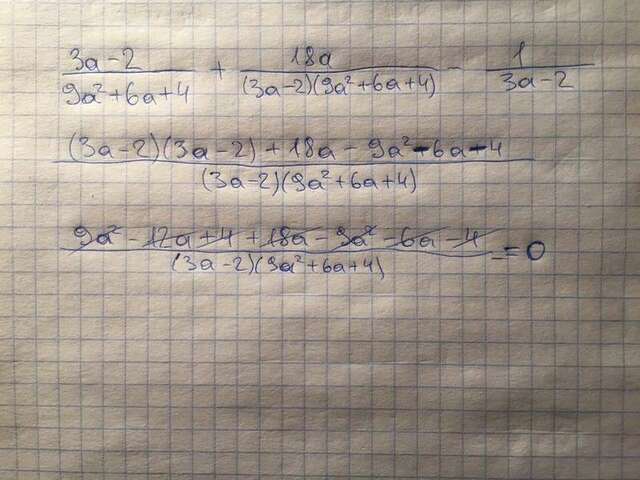 (3a-2)/(9a²+6a+4) + 18a/((3a-2)(9a²+6a+4)) - 1/(3a-2)
((3a-2)(3a-2)+18a-9a²-6a-4)/((3a-2)(9a²+6a+4))
(9a²-12a+4+18a-9a²-6a-4)/((3a-2)(9a²+6a+4)) = 0